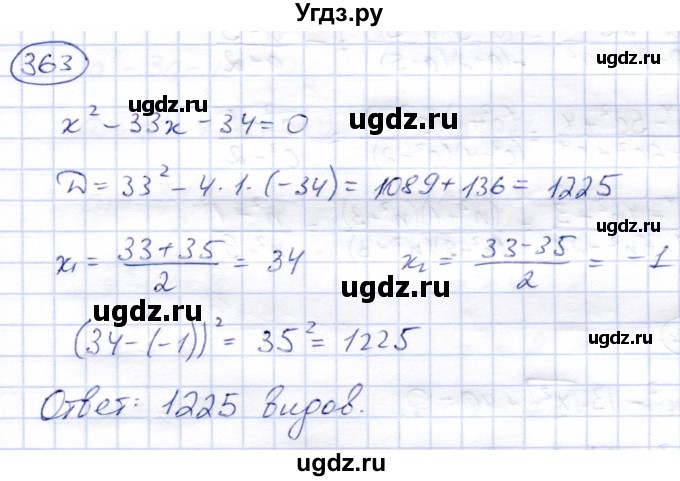 Угдз.ру
363
ugdz.ru
ugdz.ru
x² - 33x - 34 = 0
ugdz.ru
D = 33² - 4·1·(-34) = 1089 + 136 = 1225
ugdz.ru
x₁ = (33+35)/2 = 34 x₂ = (33-35)/2 = -1
ugdz.ru
ugdz.ru
(34-(-1))² = 35² = 1225
ugdz.ru
Ответ: 1225 видов.
ugdz.ru
ugdz.ru
ugdz.ru